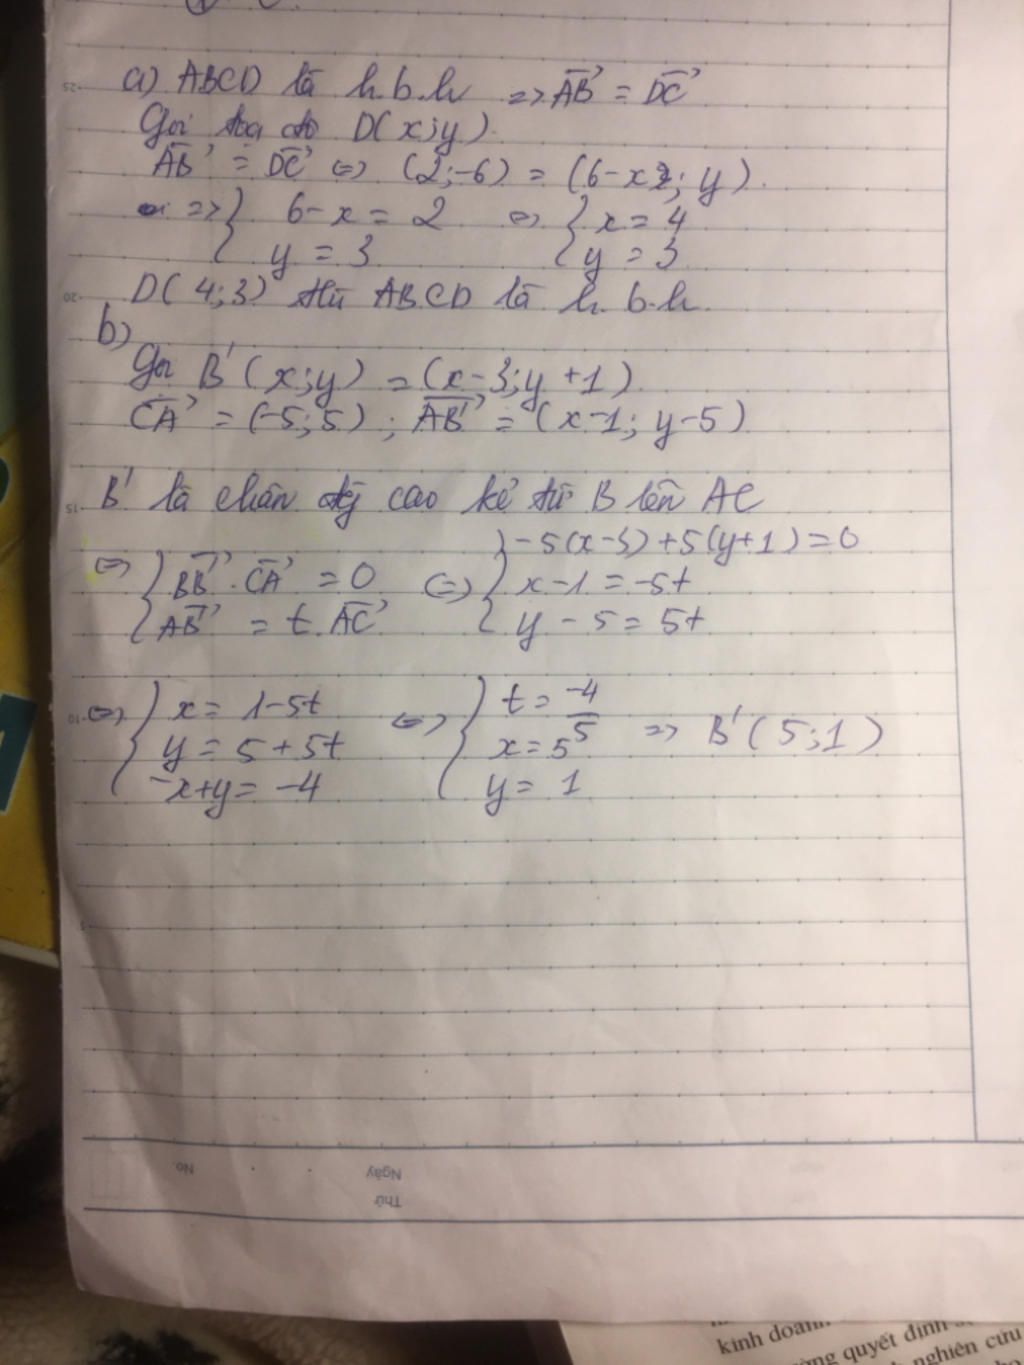 a) ABCD là h.b.h => AB = DC
Gọi tọa độ D(x;y).
AB = DC <=> (2;-6) = (6-x; y).
=> { 6-x = 2 <=> { x = 4
y = 3 y = 3
D(4;3) thì ABCD là h.b.h.
b)
Gọi B'(x;y) = (x-3;y+1).
CA = (-5;5) ; AB' = (x-1; y-5)
B' là chân đg cao kẻ từ B lên AC
<=> { BB'.CA = 0 <=> { -5(x-3)+5(y+1)=0
AB' = t.AC x-1=-5t
y-5=5t
<=> { x = 1-5t <=> { t = -4/5 => B'(5;1)
y = 5+5t x = 5
-x+y = -4 y = 1
No.
Ngày
Thứ
kinh doanh
quyết định
nghiên cứu